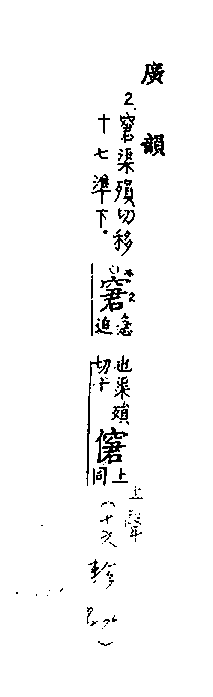 廣韻
2.窘渠殞切移
十七準下。
窘*2
急
迫
也渠殞
切
僒
上
同
上聲
(十六軫